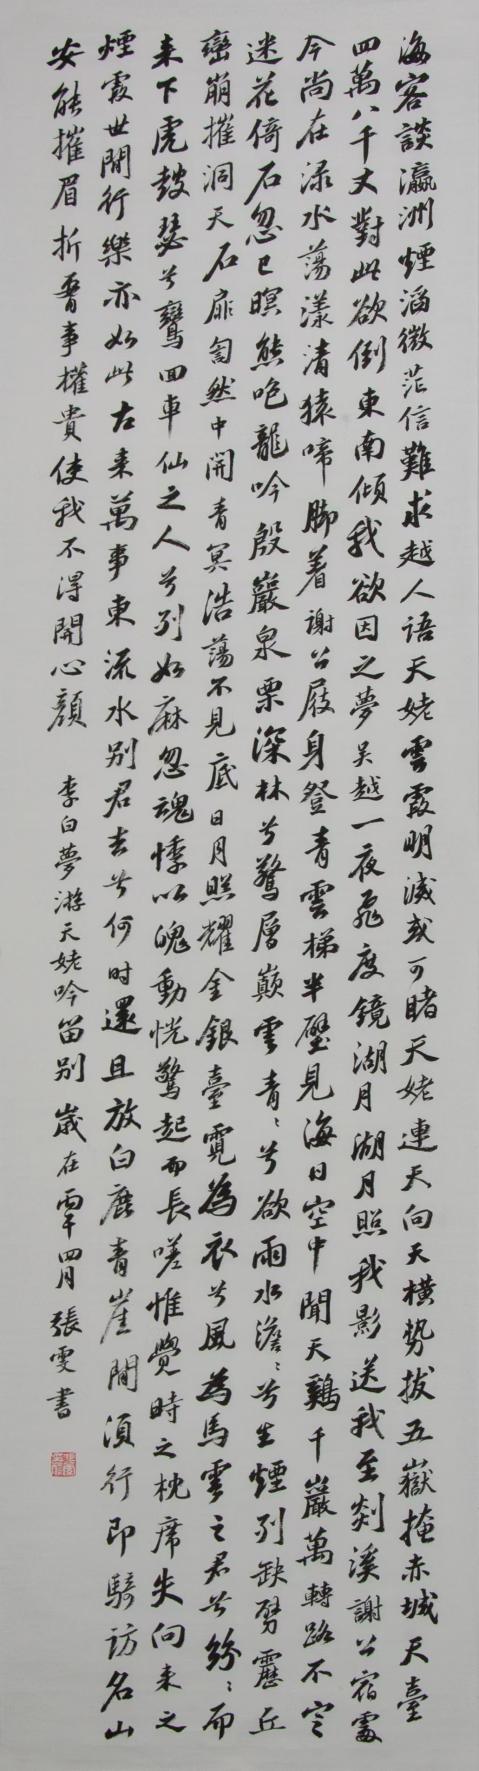 海客談瀛洲煙濤微茫信難求越人語天姥雲霞明滅或可睹天姥連天向天橫勢拔五嶽掩赤城天臺
四萬八千丈對此欲倒東南傾我欲因之夢吳越一夜飛度鏡湖月湖月照我影送我至剡溪謝公宿處
今尚在淥水蕩漾清猿啼腳着謝公屐身登青雲梯半壁見海日空中聞天雞千巖萬轉路不定
迷花倚石忽已暝熊咆龍吟殷巖泉栗深林兮驚層巔雲青〻兮欲雨水澹〻兮生煙列缺霹靂丘
巒崩摧洞天石扉訇然中開青冥浩蕩不見底日月照耀金銀臺霓為衣兮風為馬雲之君兮紛〻而
來下虎鼓瑟兮鸞回車仙之人兮列如麻忽魂悸以魄動恍驚起而長嗟惟覺時之枕席失向來之
煙霞世間行樂亦如此古來萬事東流水別君去兮何時還且放白鹿青崖間須行即騎訪名山
安能摧眉折腰事權貴使我不得開心顏 李白夢游天姥吟留別 歲在丙午四月張雯書